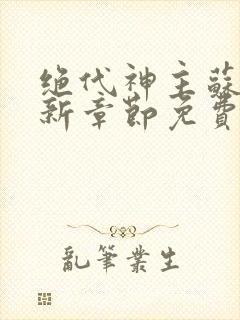 绝代神主蘇
新章節免費
亂筆業生